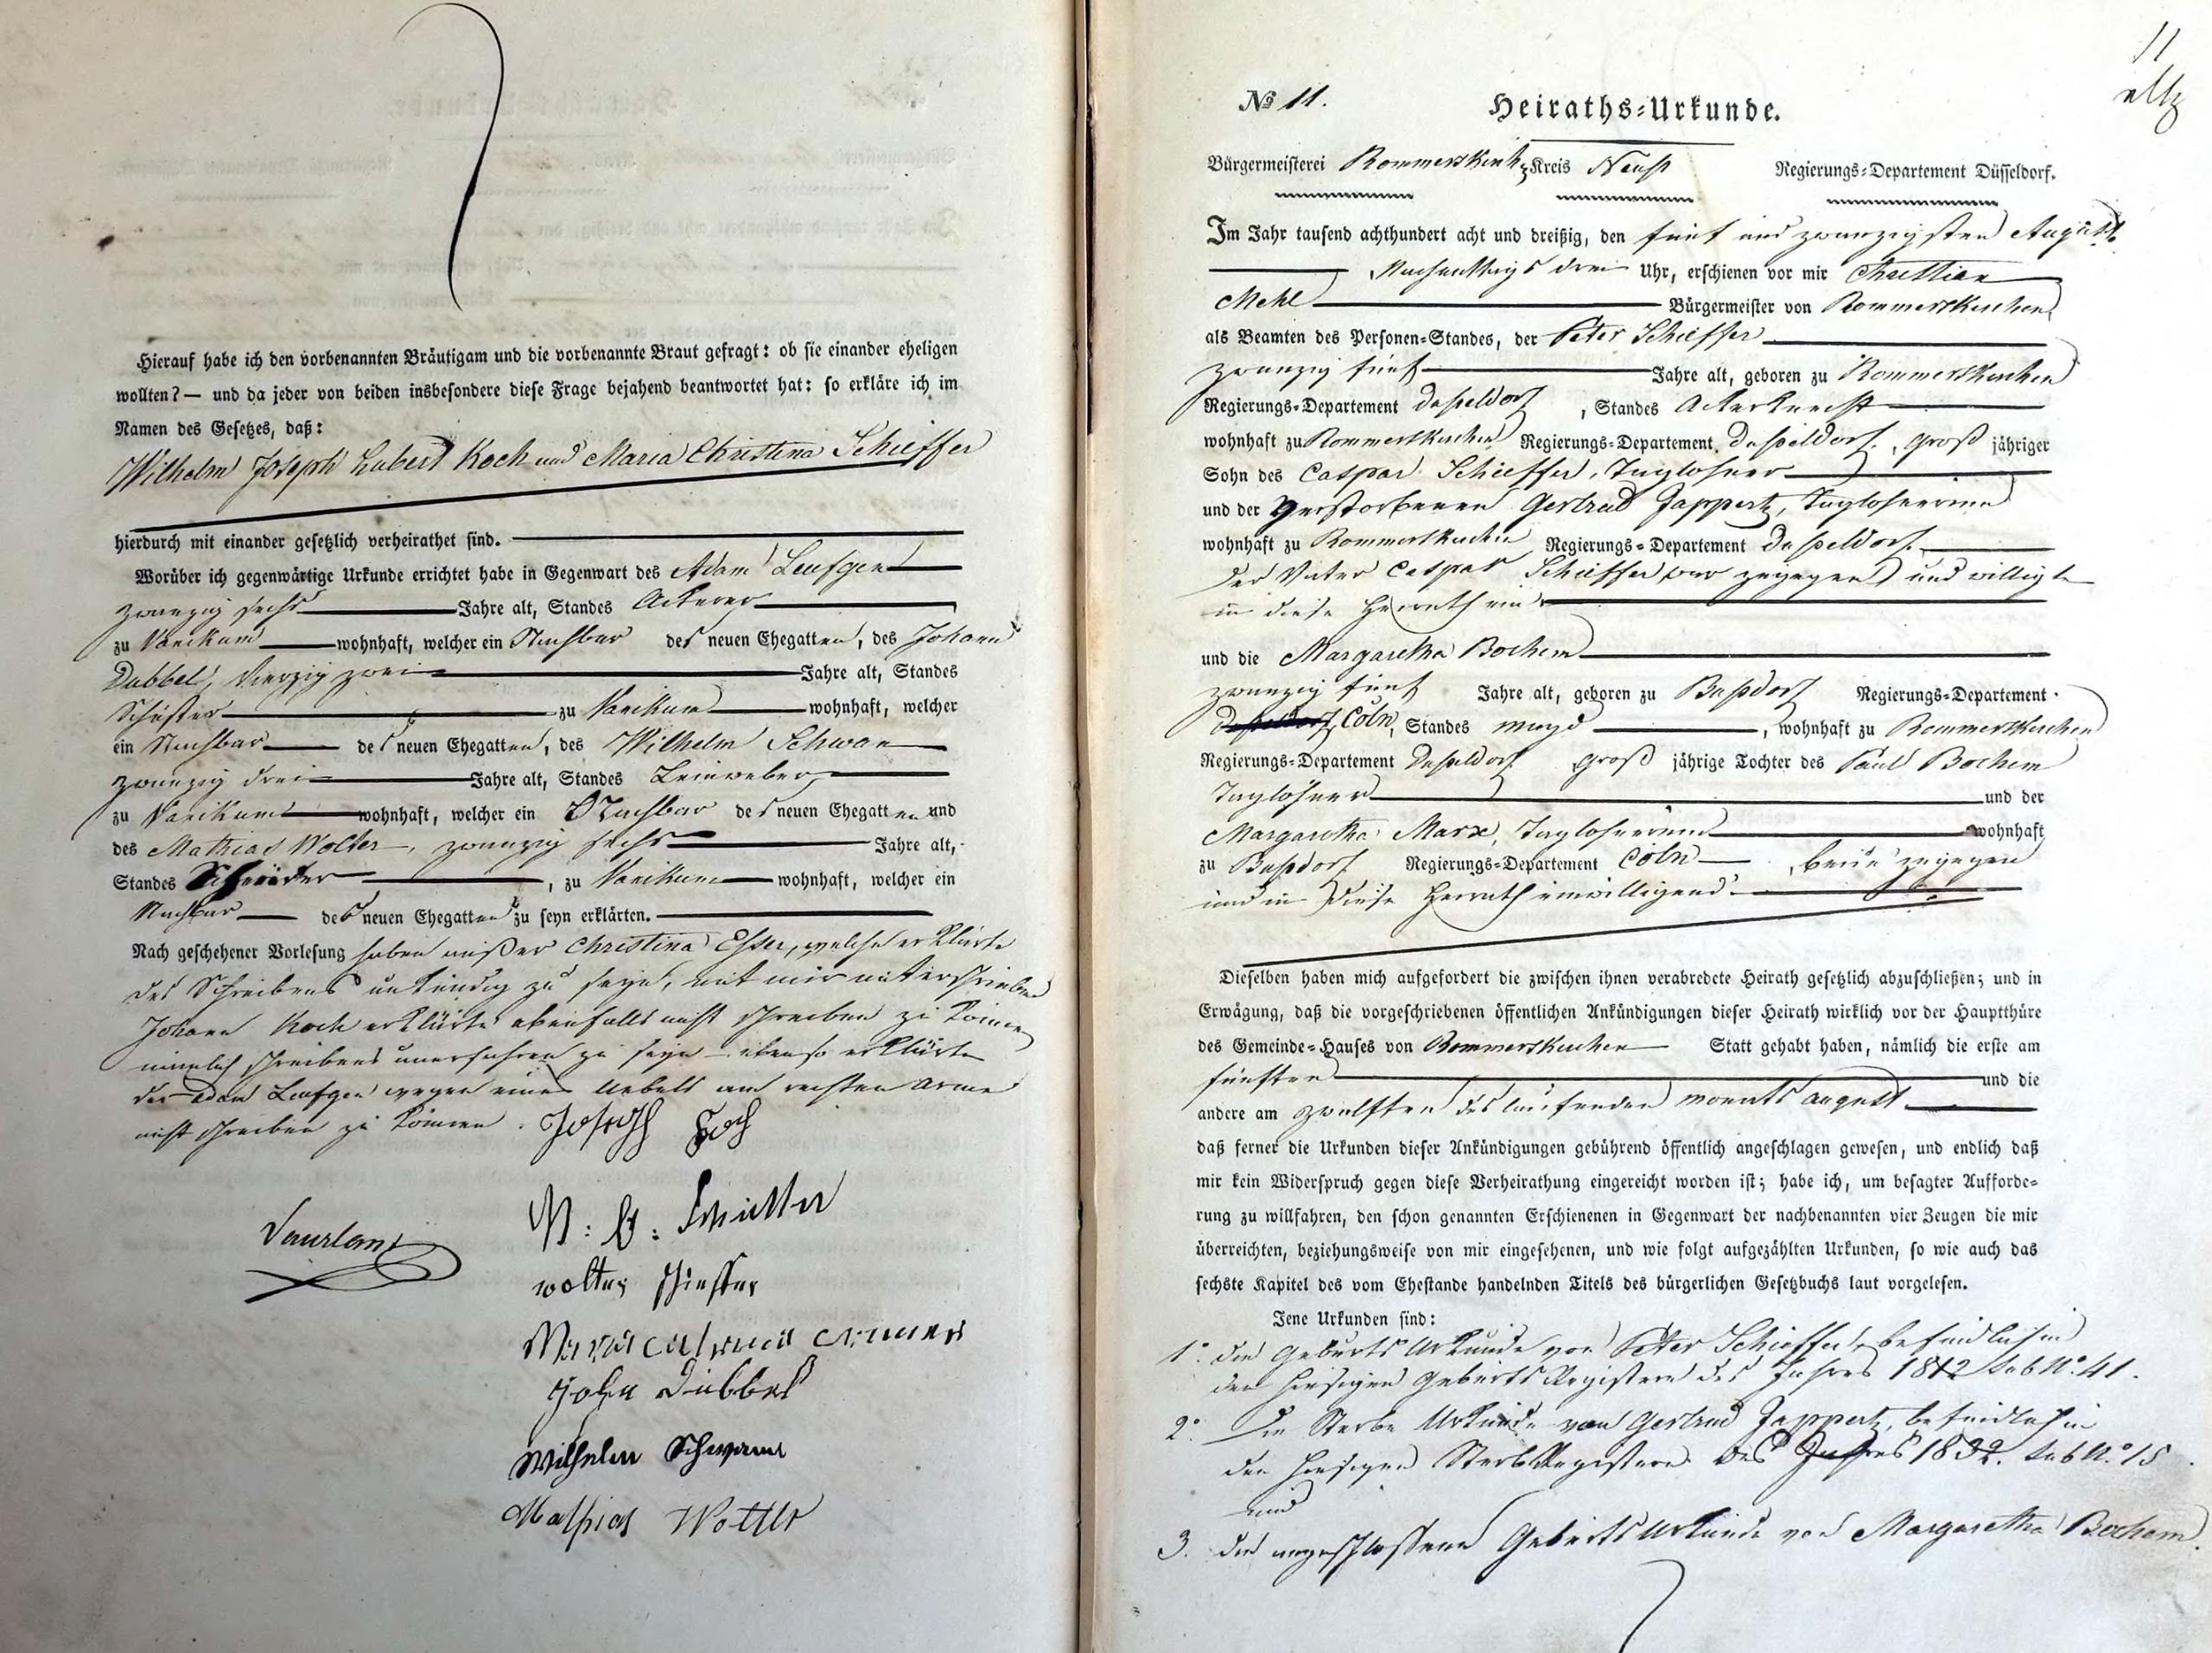 Hierauf habe ich den vorbenannten Bräutigam und die vorbenannte Braut gefragt: ob sie einander eheligen
wollten? — und da jeder von beiden insbesondere diese Frage bejahend beantwortet hat: so erkläre ich im
Namen des Gesetzes, daß:
Wilhelm Joseph Hubert Koch und Maria Christina Schieffer
hierdurch mit einander gesetzlich verheirathet sind.
Worüber ich gegenwärtige Urkunde errichtet habe in Gegenwart des Adam Leufgen
zwanzig sechs Jahre alt, Standes Ackerer
zu Vanikum wohnhaft, welcher ein Nachbar des neuen Ehegatten, des Johann
Dabbel, vierzig zwei Jahre alt, Standes
Schuster zu Vanikum wohnhaft, welcher
ein Nachbar des neuen Ehegatten, des Wilhelm Schwan
zwanzig drei Jahre alt, Standes Leinweber
zu Vanikum wohnhaft, welcher ein Nachbar des neuen Ehegatten und
des Mathias Wolter, zwanzig sechs Jahre alt,
Standes Schneider, zu Vanikum wohnhaft, welcher ein
Nachbar des neuen Ehegatten zu seyn erklärten.
Nach geschehener Vorlesung haben außer Christina Esser, welche erklärte
des Schreibens unkundig zu seyn, mit mir unterschrieben
Johann Koch erklärte ebenfalls nicht schreiben zu können
nämlich schreibens unerfahren zu seyn ebenso erklärte
der Adam Leufgen wegen eines Uebels am rechten Arme
nicht schreiben zu können. Joseph Koch
M: C: Schieffer
wolter schieffer
Maria
Johan Dübbel
Wilhelm Schwann
Mathias Wolter
11
No 11.
Heiraths-Urkunde.
Bürgermeisterei Rommerskirchen Kreis Neuß Regierungs-Departement Düsseldorf.
Im Jahr tausend achthundert acht und dreißig, den fünf und zwanzigsten August
Nachmittags drei Uhr, erschienen vor mir Christian
Mehl Bürgermeister von Rommerskirchen
als Beamten des Personen-Standes, der Peter Schieffer
zwanzig fünf Jahre alt, geboren zu Rommerskirchen
Regierungs-Departement Düsseldorf, Standes Ackerknecht
wohnhaft zu Rommerskirchen Regierungs-Departement Düsseldorf, groß jähriger
Sohn des Caspar Schieffer, Taglöhner
und der verstorbenen Gertrud Zappertz, Taglöhnerinn
wohnhaft zu Rommerskirchen Regierungs-Departement Düsseldorf.
Der Vater Caspar Schieffer war zugegen und willigte
in diese Heirath ein
und die Margaretha Bochem
zwanzig fünf Jahre alt, geboren zu Busdorf Regierungs-Departement
Düsseldorf, Cöln, Standes Magd, wohnhaft zu Rommerskirchen
Regierungs-Departement Düsseldorf groß jährige Tochter des Paul Bochem
Taglöhner und der
Margaretha Marx, Taglöhnerinn wohnhaft
zu Busdorf Regierungs-Departement Cöln, beide zugegen
und in diese Heirath einwilligend.
Dieselben haben mich aufgefordert die zwischen ihnen verabredete Heirath gesetzlich abzuschließen; und in
Erwägung, daß die vorgeschriebenen öffentlichen Ankündigungen dieser Heirath wirklich vor der Hauptthüre
des Gemeinde-Hauses von Rommerskirchen Statt gehabt haben, nämlich die erste am
fünften und die
andere am zwölften des laufenden Monats August
daß ferner die Urkunden dieser Ankündigungen gebührend öffentlich angeschlagen gewesen, und endlich daß
mir kein Widerspruch gegen diese Verheirathung eingereicht worden ist; habe ich, um besagter Aufforde-
rung zu willfahren, den schon genannten Erschienenen in Gegenwart der nachbenannten vier Zeugen die mir
überreichten, beziehungsweise von mir eingesehenen, und wie folgt aufgezählten Urkunden, so wie auch das
sechste Kapitel des vom Ehestande handelnden Titels des bürgerlichen Gesetzbuchs laut vorgelesen.
Jene Urkunden sind:
1° die Geburts Urkunde von Peter Schieffer, befindlich in
den hiesigen Geburts Registern des Jahres 1812 sub No. 41.
2° Die Sterbe Urkunde von Gertrud Zappertz, befindlich in
den hiesigen Sterb Registern des Jahres 1832. sub No. 15
und
3. die angeschlossene Geburts Urkunde von Margaretha Bochem.